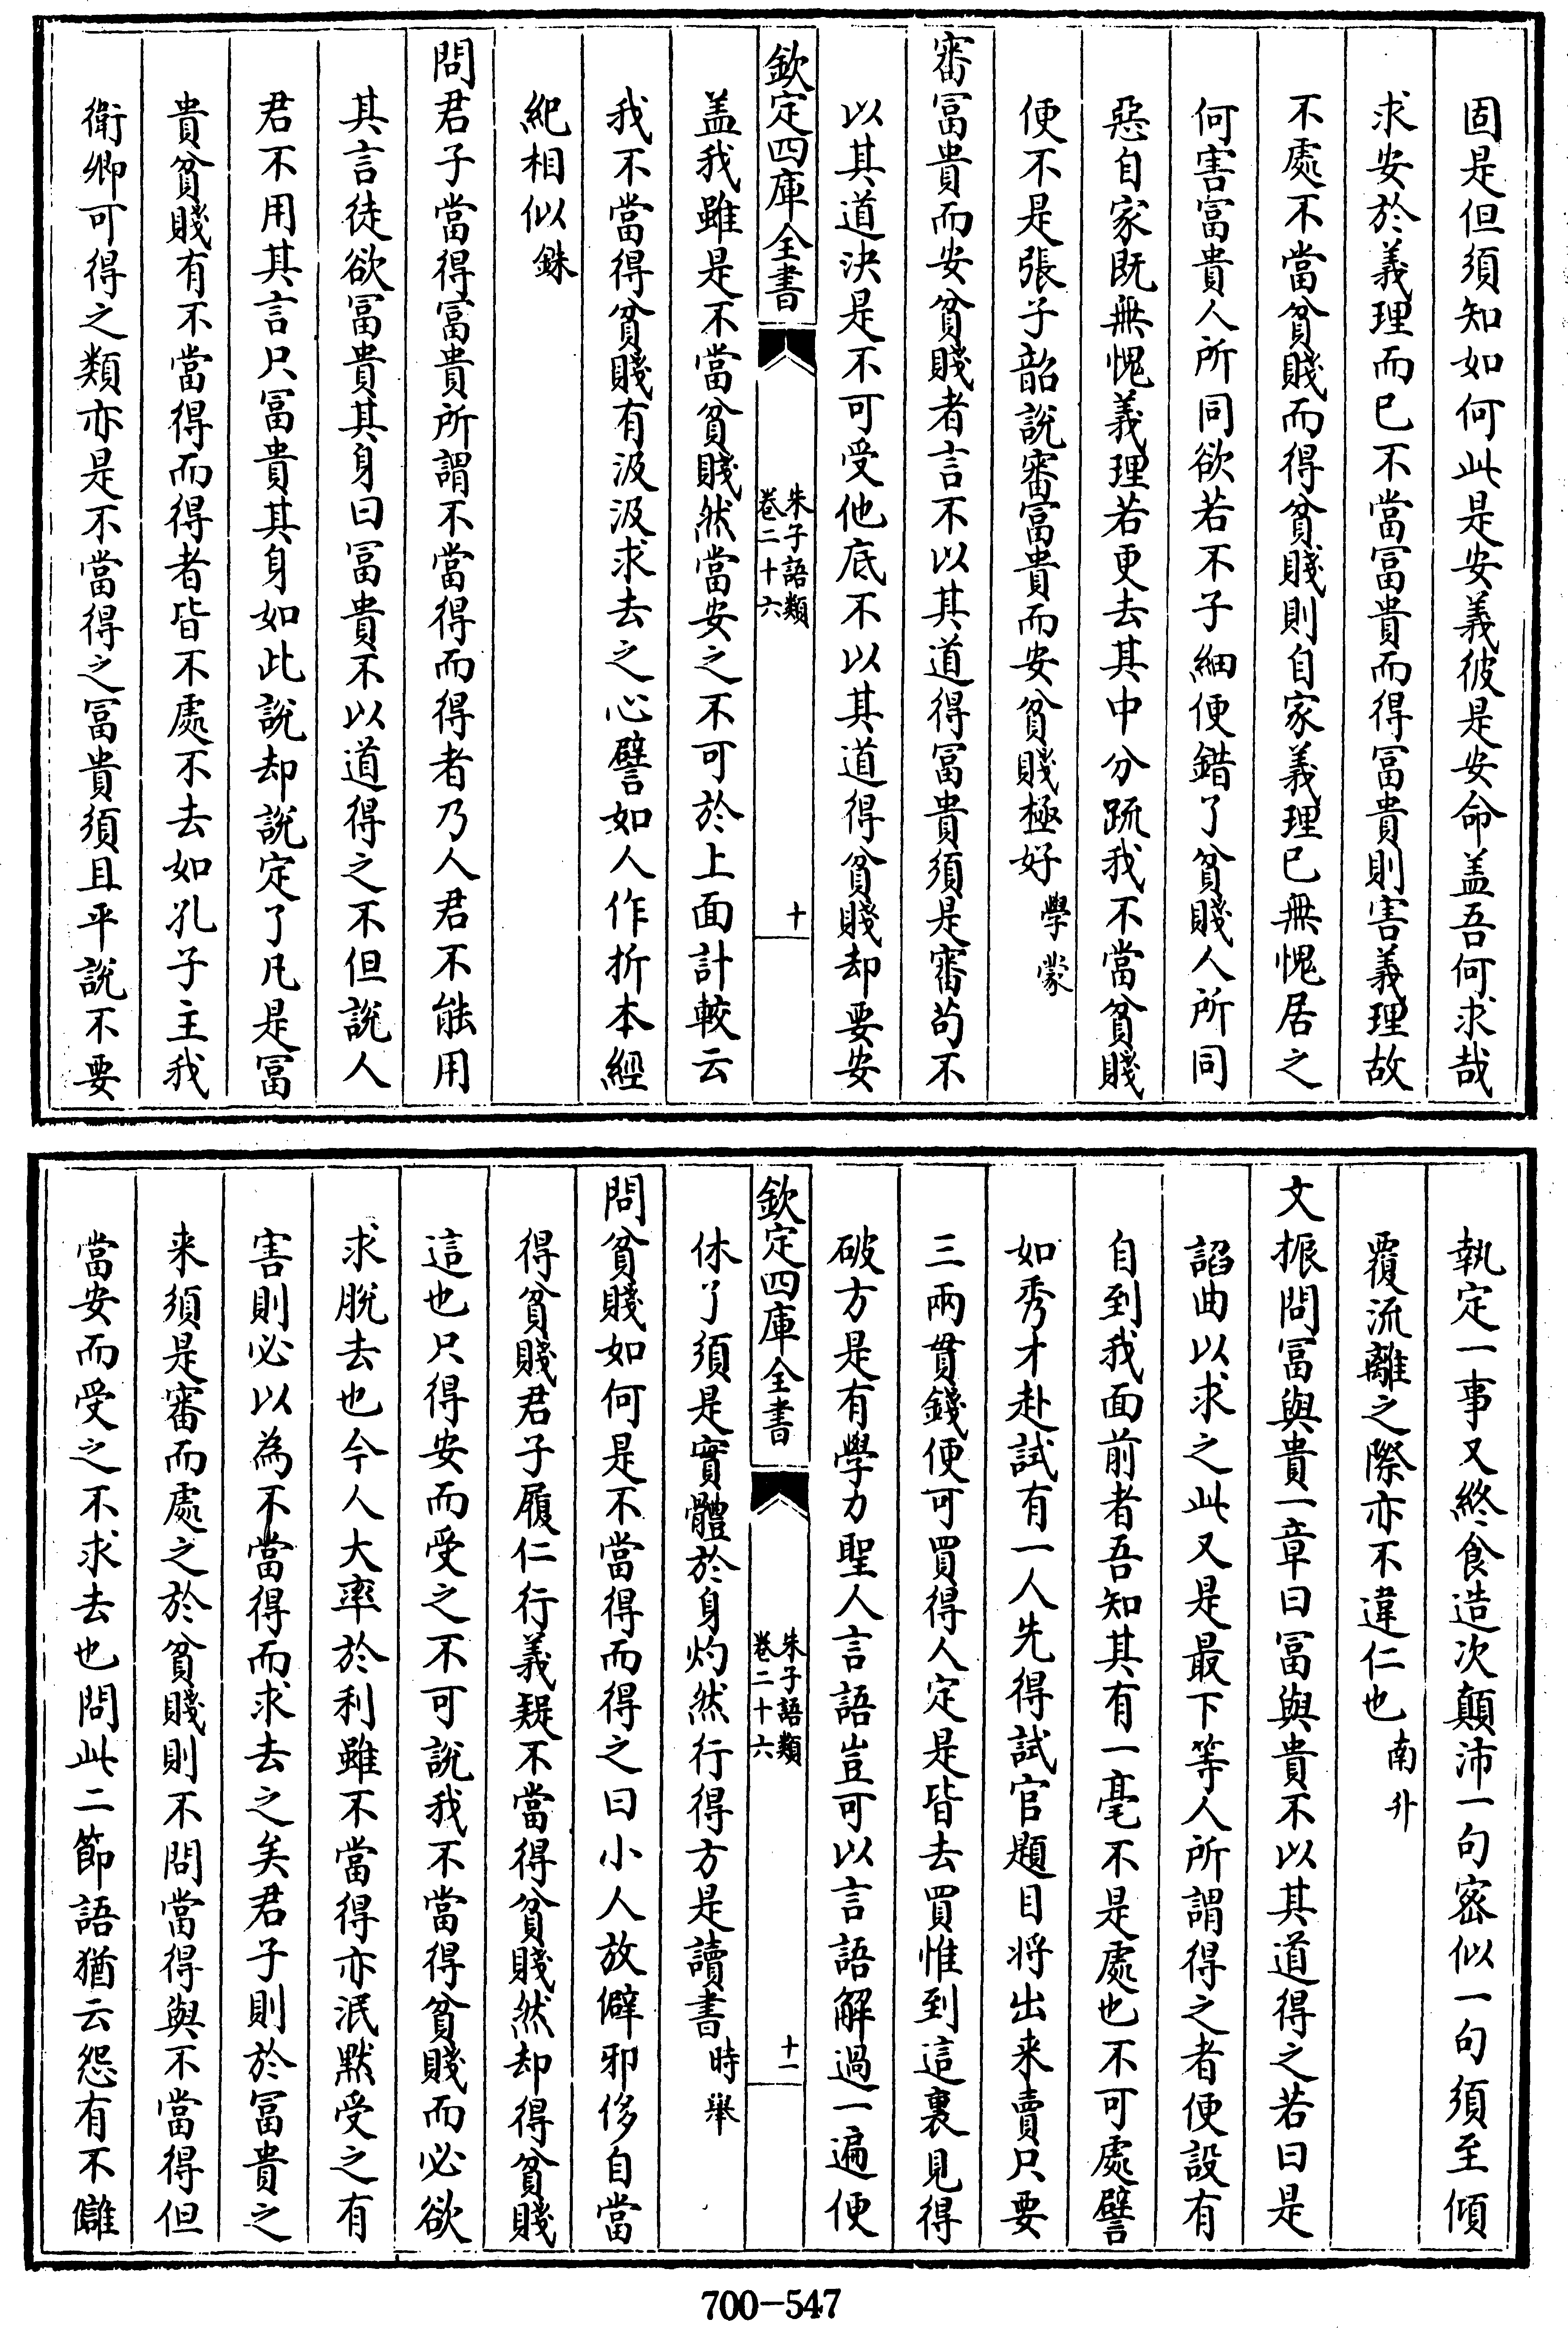 固是但須知如何此是安義彼是安命盖吾何求哉
求安於義理而已不當冨貴而得冨貴則害義理故
不處不當貧賤而得貧賤則自家義理已無愧居之
何害富貴人所同欲若不子細便錯了貧賤人所同
惡自家既無愧義理若更去其中分䟽我不當貧賤
便不是張子韶説審富貴而安貧賤極好學蒙
審冨貴而安貧賤者言不以其道得冨貴須是審苟不
以其道决是不可受他底不以其道得貧賤却要安
欽定四庫全書
朱子語類
卷二十六
十
盖我雖是不當貧賤然當安之不可於上面計較云
我不當得貧賤有汲汲求去之心譬如人作折本經
紀相似銖
問君子當得冨貴所謂不當得而得者乃人君不能用
其言徒欲冨貴其身曰冨貴不以道得之不但說人
君不用其言只冨貴其身如此説却説定了凡是冨
貴貧賤有不當得而得者皆不處不去如孔子主我
衛卿可得之類亦是不當得之冨貴須且平説不要
執定一事又終食造次顛沛一句宻似一句須至傾
覆流離之際亦不違仁也南升
文振問冨與貴一章曰冨與貴不以其道得之若曰是
諂曲以求之此又是最下等人所謂得之者便設有
自到我面前者吾知其有一毫不是處也不可處譬
如秀才赴試有一人先得試官題目将出来賣只要
三兩貫錢便可買得人定是皆去買惟到這裏見得
破方是有學力聖人言語豈可以言語解過一遍便
欽定四庫全書
朱子語類
卷二十六
十一
休了須是實體於身灼然行得方是讀書時舉
問貧賤如何是不當得而得之曰小人放僻邪侈自當
得貧賤君子履仁行義疑不當得貧賤然却得貧賤
這也只得安而受之不可說我不當得貧賤而必欲
求脫去也今人大率於利雖不當得亦泯默受之有
害則必以為不當得而求去之矣君子則於冨貴之
来須是審而處之於貧賤則不問當得與不當得但
當安而受之不求去也問此二節語猶云怨有不讎
700-547